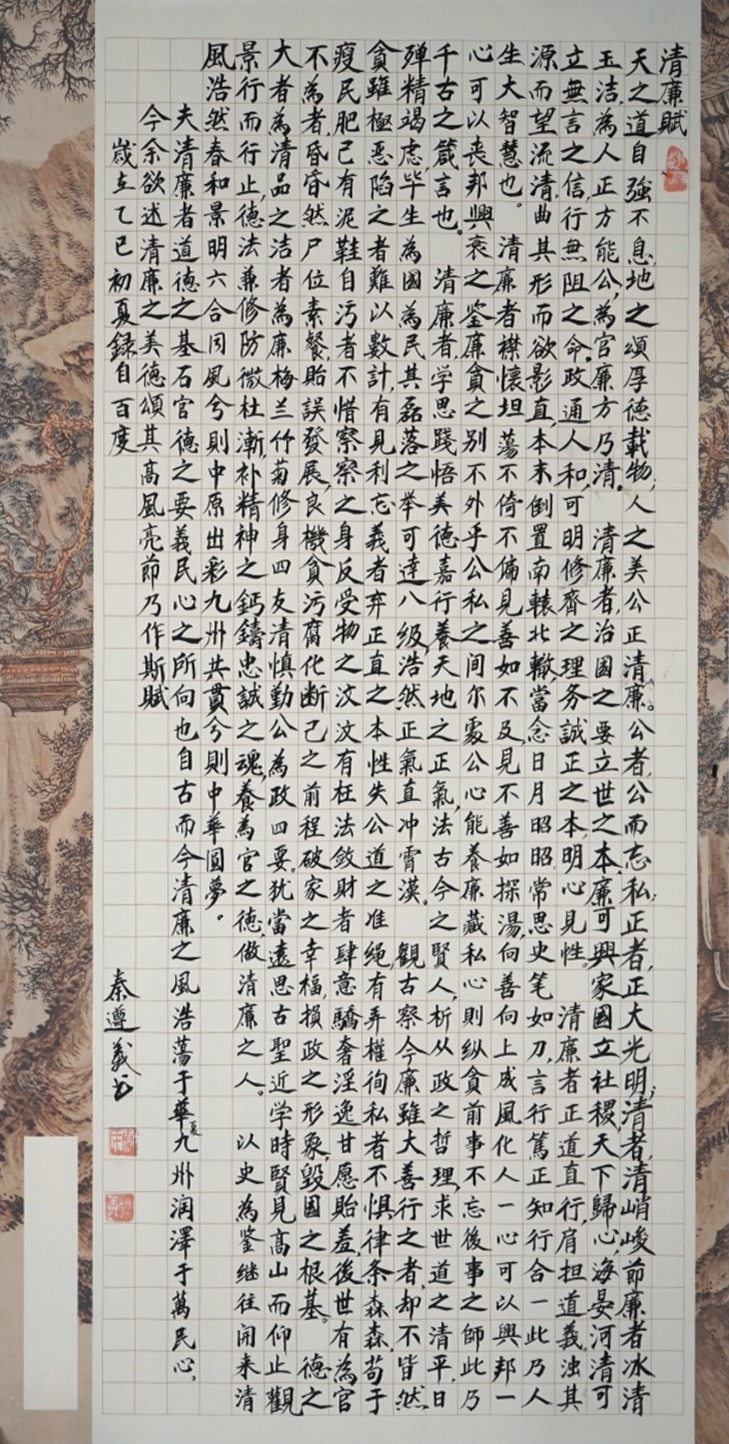 清廉賦
天之道自強不息,地之頌厚德載物,人之美公正清廉。公者,公而忘私,正者,正大光明,清者,清峭峻節廉者冰清
玉洁,為人正方能公,為官廉方乃清。清廉者,治國之要立世之本,廉可興家國立社稷,天下歸心,海晏河清可
立無言之信,行無阻之命。政通人和,可明修齊之理务誠正之本,明心見性。清廉者正道直行,肩担道義,浊其
源而望流清,曲其形而欲影直,本末倒置南轅北轍,當念日月昭昭常思史笔如刀,言行篤正知行合一此乃人
生大智慧也。清廉者襟懷坦蕩不倚不偏見善如不及,見不善如探湯,向善向上成風化人一心可以興邦一
心可以丧邦興衰之鉴廉貪之别不外乎公私之间尔公心能養廉藏私心則纵貪前事不忘後事之師此乃
千古之箴言也。清廉者,学思踐悟美德嘉行養天地之正氣,法古今之賢人,析从政之哲理,求世道之清平,日
殚精竭虑,毕生為國為民其磊落之举可達八级,浩然正氣直冲霄漢。観古察今廉雖大善行之者,却不皆然,
貪雖極惡陷之者難以數計,有見利忘義者弃正直之本性失公道之准绳,有弄權徇私者不惧律条森森,苟于
瘦民肥己有泥鞋自污者不惜察察之身反受物之汶汶有枉法敛財者肆意驕奢淫逸甘愿貽羞,後世有為官
不為者昏昏然尸位素餐,貽誤發展,良機貪污腐化断己之前程破家之幸福,損政之形象,毀國之根基。德之
大者為清品之洁者為廉梅兰竹菊修身四友清慎勤公為政四要,犹當遠思古聖近学時賢見高山而仰止觀
景行而行止,德法兼修防微杜漸,补精神之鈣鑄忠誠之魂,養為官之德,做清廉之人。以史為鉴继往開来清
風浩然春和景明六合同風兮則中原出彩九州共貫兮則中華圓夢。
夫清廉者道德之基石官德之要義民心之所向也自古而今清廉之風浩蕩于華夏九州润澤于萬民心,
今余欲述清廉之美德頌其高風亮節乃作斯賦
歲在乙巳初夏録自百度
秦遵義书